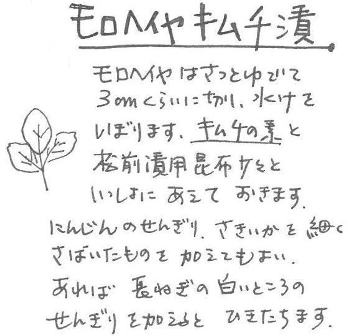 モロヘイヤキムチ漬
モロヘイヤはさっとゆでて
3cmくらいに切り、水けを
しぼります、キムチの素と
松前漬用昆布などと
いっしょに あえて おきます.
にんじんのせんぎり、さきいかを細く
さばいたものを 加えてもよい.
あれば 長ねぎの白いところの
せんぎりを加えると ひきたちます.